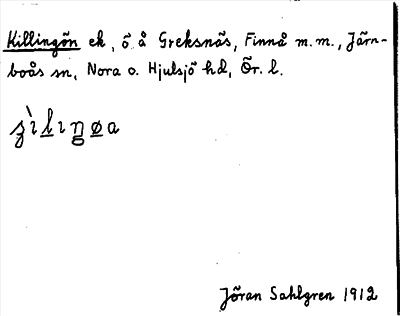 Killingön ek, ö. å Greksnäs, Finnå m.m., Järn-
boås sn, Nora o. Hjulsjö hd, Ör. l.
Jöran Sahlgren 1912